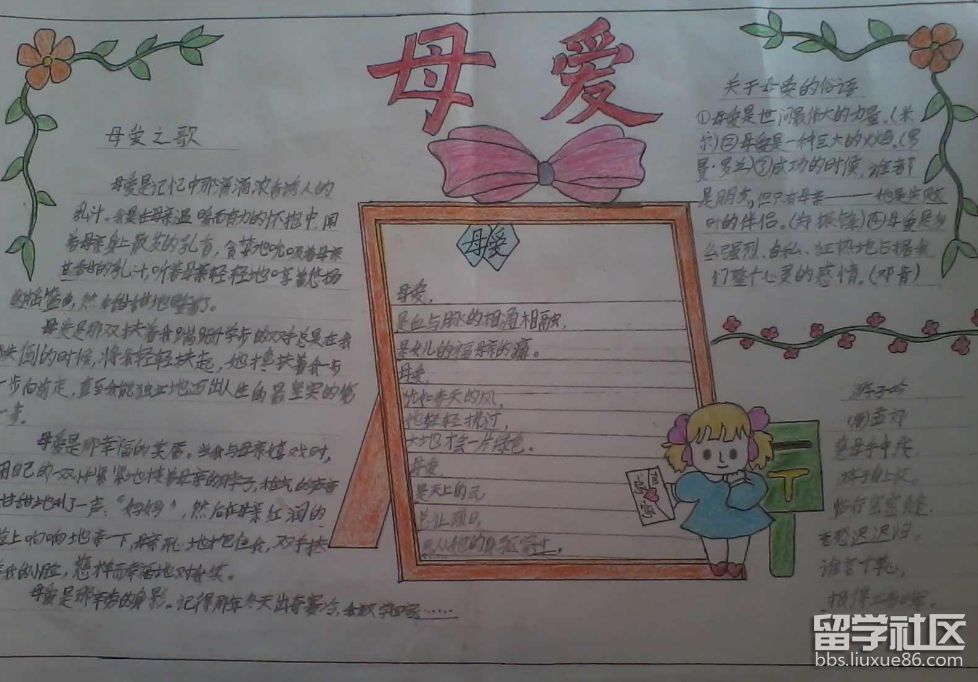 母爱
母爱之歌
母爱是记忆中那滴滴浓香诱人的
乳汁。我是在母亲温暖而有力的怀抱中,闻
着母亲身上散发的乳香,贪婪地吮吸着母亲
乳汁,听着母亲轻轻地哼着悠扬
的摇篮曲,然后甜甜地睡着了。
母爱是那双扶着我蹒跚学步的双手总是在我
倒的时候,将我轻轻扶起,她搀扶着我一步
一步向前走,直至我能独立地迈出人生的最坚实的第
一步。
母爱是那幸福的笑容。当我与母亲嬉戏时,
用自己的双小手紧紧地搂着母亲的脖子,稚气的声音
甜甜地叫了一声:“妈妈”,然后在母亲红润的
脸上响响地亲一下,母亲
我的小脸,慈祥而幸福地对我笑。
母爱是那辛苦的身影。记得那年冬天出奇寒冷,
母爱
母爱,
是血与脉的相通相融,
是女儿的福母亲的痛。
母爱,
恍如春天的风,
她轻轻拂过,
大地才会一片绿色。
母爱
是天上的云
总让烈日,
从她的身躯穿过。
关于母爱的俗语
①母爱是世间最伟大的力量。(米
尔)②母爱是一种巨大的火焰。(罗
曼·罗兰)③成功的时候,谁都
是朋友,但只有母亲——她是失败
时的伴侣。(郑振铎)④母爱是多
么强烈、自私、狂热地占据我
们整个心灵的感情。(邓肯)
游子吟
孟郊
慈母手中线,
游子身上衣。
临行密密缝,
意恐迟迟归。
谁言寸草心,
报得三春晖。
留学社区
bbs.liuxue86.com